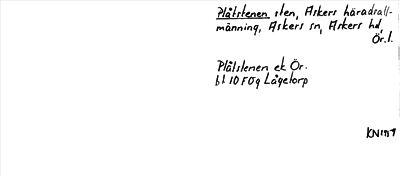 Plåtstenen sten, Askers häradsall-
männing, Askers sn, Askers hd,
Ör. l.
Plåtstenen ek Ör.
bl 10 F 0 g Lågetorp